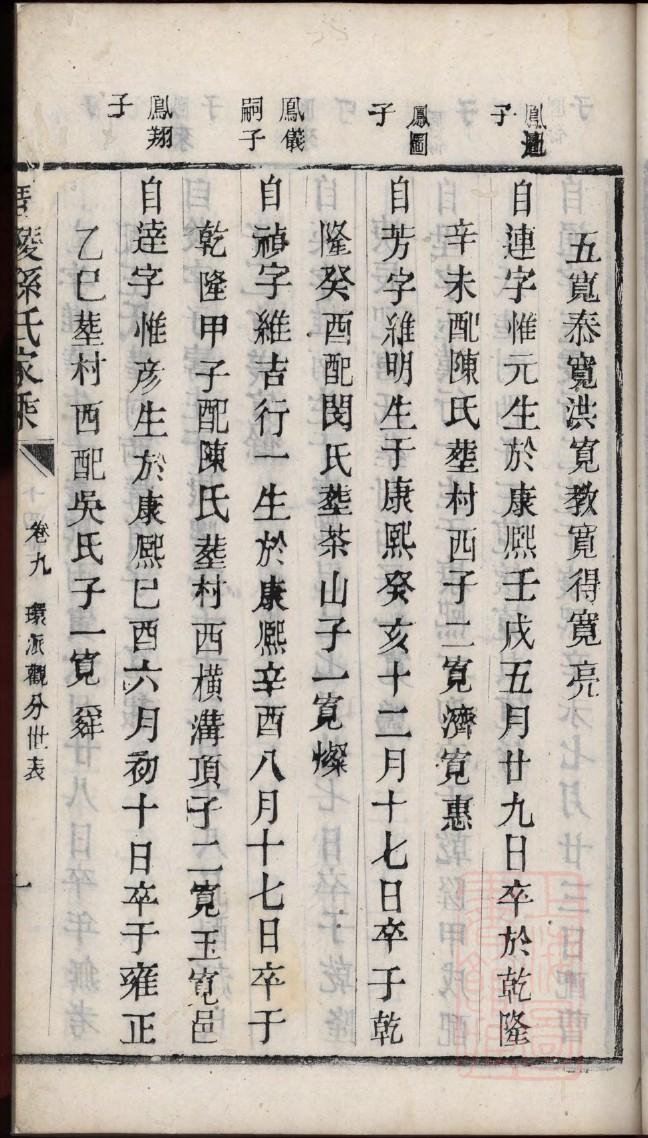 五寬泰寬洪寬教寬得寬亮
鳳
子
自連字惟元生於康熙壬戌五月廿九日卒於乾隆
辛未配陳氏塟村西子二寬濟寬惠
鳳圖
子
自芳字維明生于康熙癸亥十二月十七日卒于乾
隆癸酉配閔氏塟茶山子一寬燦
鳳儀
嗣子
自禎字維吉行一生於康熙辛酉八月十七日卒于
乾隆甲子配陳氏塟村西橫溝頂子二寬玉寬邑
鳳翔
子
自逹字惟彦生於康熙巳酉六月初十日卒于雍正
乙巳塟村西配吳氏子一寬
陵孫氏家乘
卷九
環派觀分世表
十